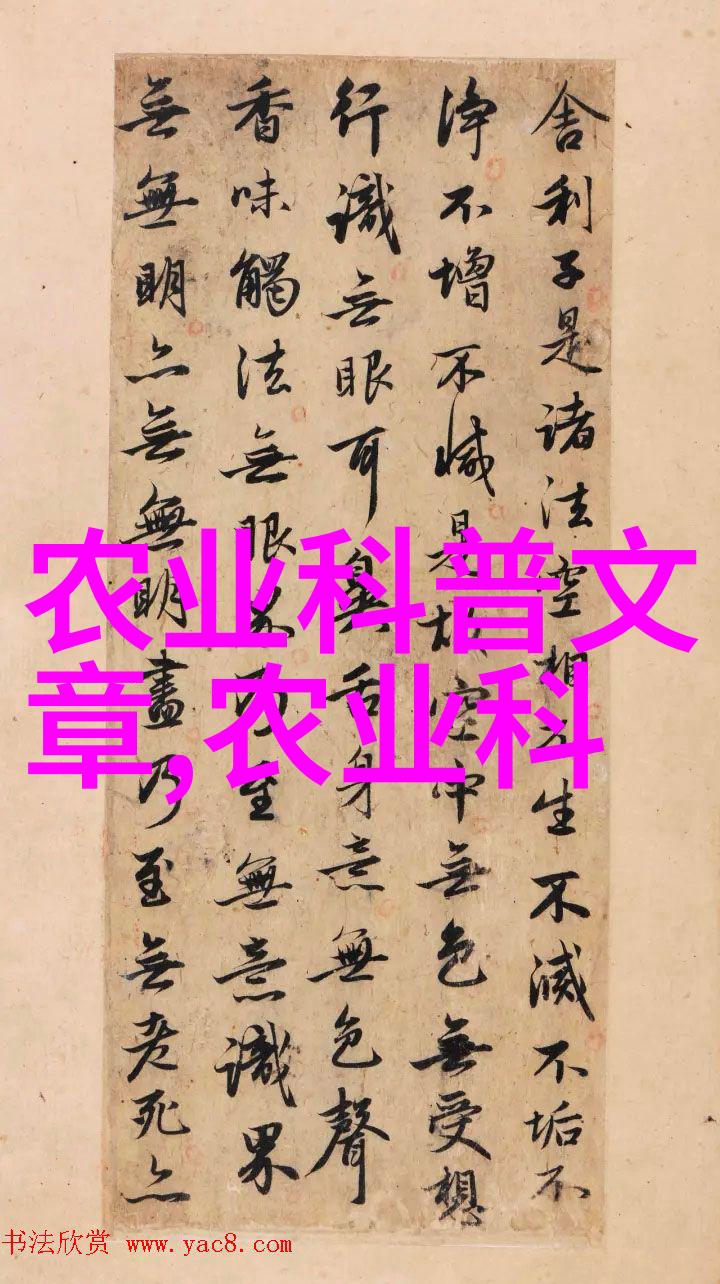 舍利子是諸法空相不生不滅不垢不
淨不增不減是故空中無色無受想
行識無眼耳鼻舌身意無色聲
香味觸法無眼界乃至無意識界
無無明亦無無明盡乃至無老死亦
农业科普文
章,农业科
书法欣赏 www.yac8.com